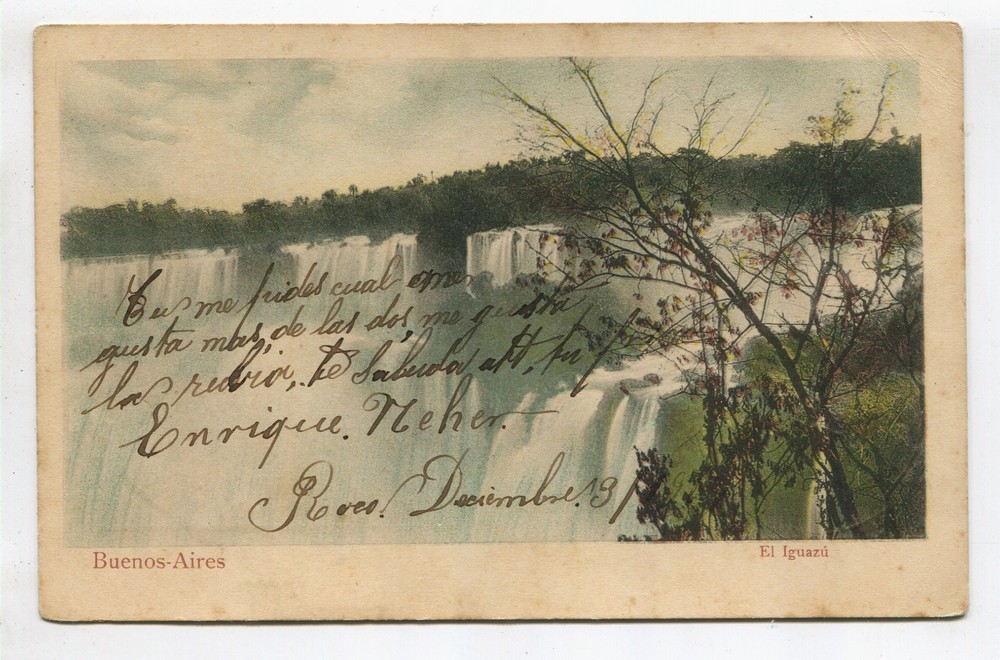 Tu me pides cual me
gusta mas, de las dos, me gusta
la rubia, te saluda att. tu
Enrique. Neher.
Roco. Deciembre. 3/
Buenos-Aires
El Iguazú